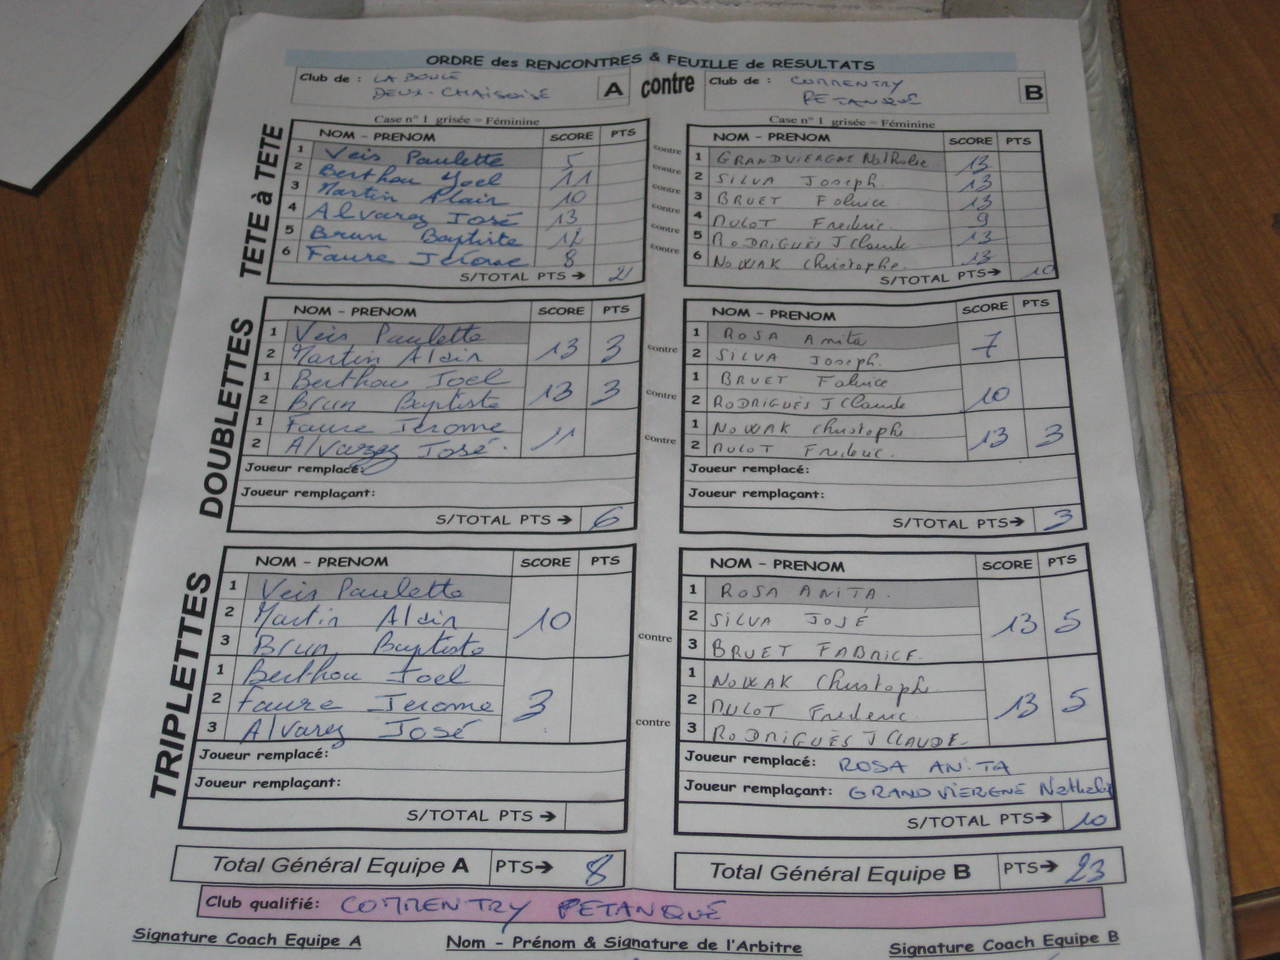 ORDRE des RENCONTRES & FEUILLE de RESULTATS
Club de : LA BOULE DEUX-CHAISOISE A contre Club de : COMMENTRY PETANQUE B
Case n° 1 grisée = Féminine Case n° 1 grisée = Féminine
TETE à TETE
NOM - PRENOM SCORE PTS NOM - PRENOM SCORE PTS
1 Veis Paulette 5 contre 1 GRANDVIERGNE Nathalie 13
2 Berthou Joel 11 contre 2 SILVA Joseph 13
3 Martin Alain 10 contre 3 BRUET Fabrice 13
4 Alvarez José 13 contre 4 DULOT Frederic 9
5 Brun Baptiste 12 contre 5 RODRIGUES J Claude 13
6 Faure Jérome 8 contre 6 NOWAK Christophe 13
S/TOTAL PTS→ 2 S/TOTAL PTS→ 10
DOUBLETTES
NOM - PRENOM SCORE PTS NOM - PRENOM SCORE PTS
1 Veis Paulette 13 3 1 ROSA Anita 7
2 Martin Alain contre 2 SILVA Joseph
1 Berthou Joel 13 3 1 BRUET Fabrice 10
2 Brun Baptiste contre 2 RODRIGUES J Claude
1 Faure Jerome 11 1 NOWAK Christophe 13 3
2 Alvarez José contre 2 DULOT Frederic
Joueur remplacé: Joueur remplacé:
Joueur remplaçant: Joueur remplaçant:
S/TOTAL PTS→ 6 S/TOTAL PTS→ 3
TRIPLETTES
NOM - PRENOM SCORE PTS NOM - PRENOM SCORE PTS
1 Veis Paulette 1 ROSA ANITA
2 Martin Alain 10 2 SILVA JOSÉ 13 5
3 Brun Baptiste contre 3 BRUET FABRICE
1 Berthou Joel 1 NOWAK Christophe
2 Faure Jerome 3 2 DULOT Frederic 13 5
3 Alvarez José contre 3 RODRIGUES J CLAUDE
Joueur remplacé: Joueur remplacé: ROSA ANITA
Joueur remplaçant: Joueur remplaçant: GRANDVIERGNE Nathalie
S/TOTAL PTS→ S/TOTAL PTS→ 10
Total Général Equipe A PTS→ 8 Total Général Equipe B PTS→ 23
Club qualifié: COMMENTRY PETANQUE
Signature Coach Equipe A Nom - Prénom & Signature de l'Arbitre Signature Coach Equipe B